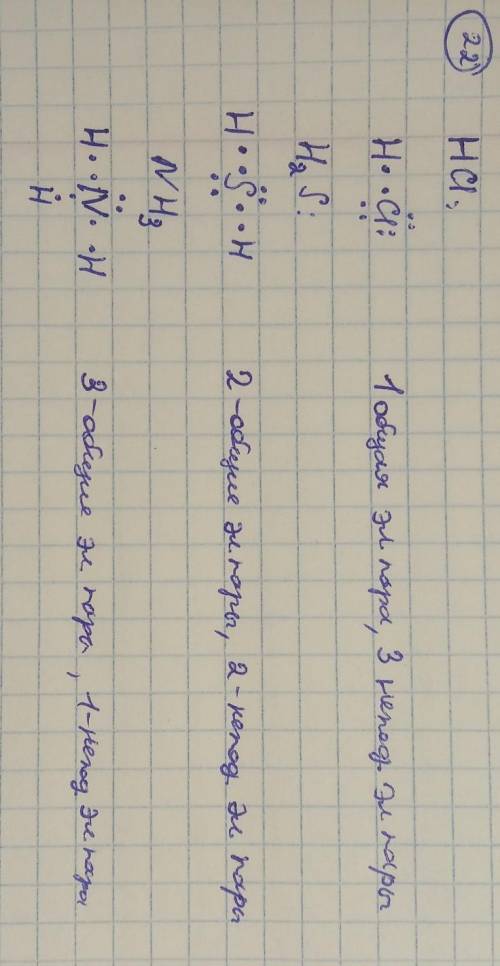 22
HCl:
H · · Cl: 1 общая эл пара, 3 непод. эл пары
H₂S:
H · · S · · H 2 - общие эл пары, 2 - непод. эл пары
NH₃
H · · N · · H 3 - общие эл пары, 1 - непод эл пара
H